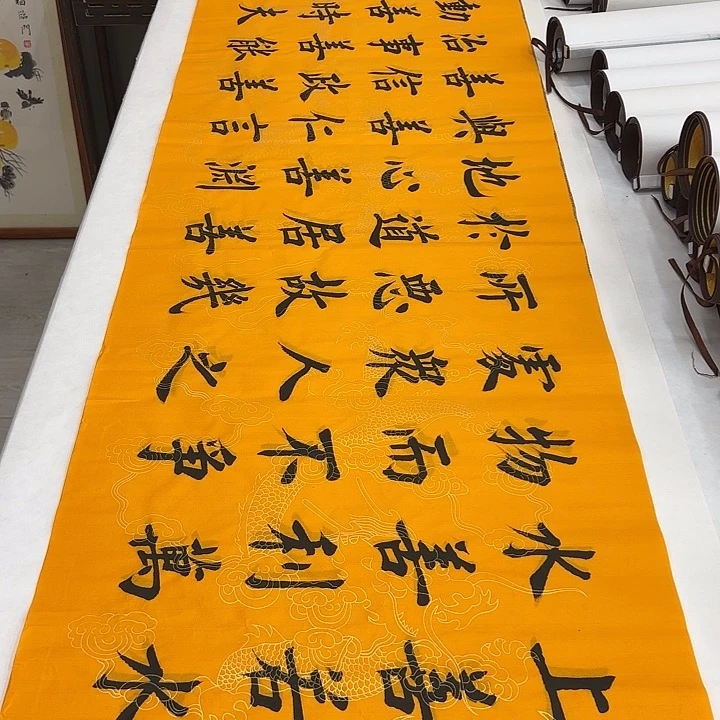 上善若水
水善利萬
物而不爭
處衆人之
所惡故幾
於道居善
地心善淵
與善仁言
善信政善
治事善能
動善時夫